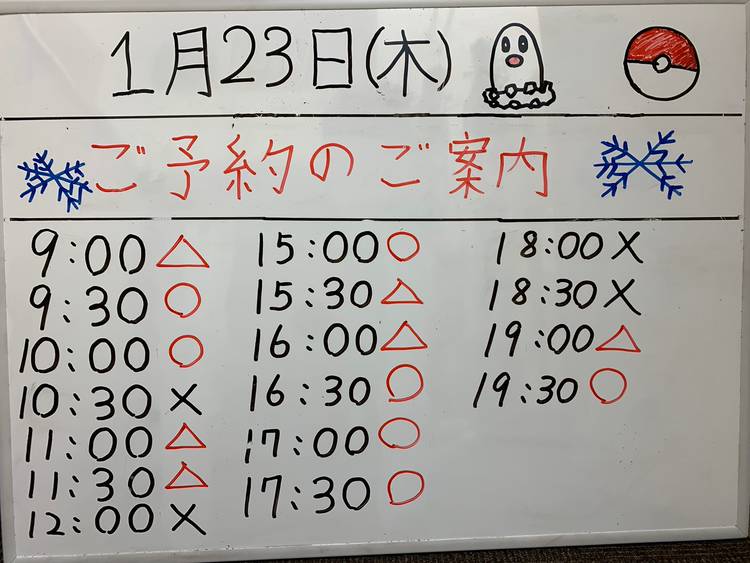 1月23日(木)
ご予約のご案内
9:00 △
9:30 ○
10:00 ○
10:30 ×
11:00 △
11:30 △
12:00 ×
15:00 ○
15:30 △
16:00 △
16:30 ○
17:00 ○
17:30 ○
18:00 ×
18:30 ×
19:00 △
19:30 ○